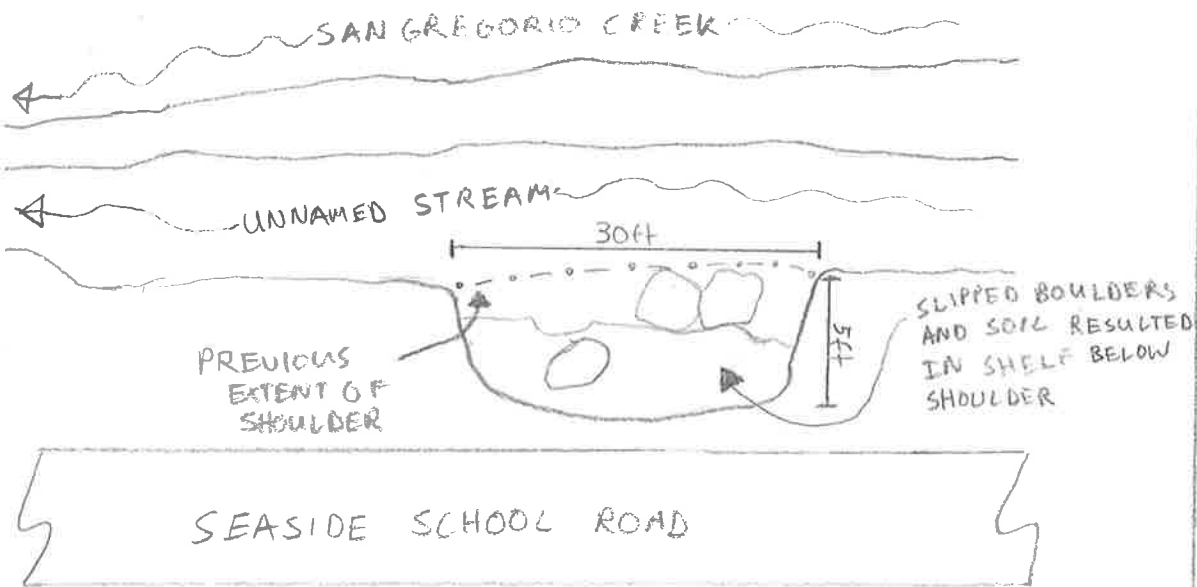 SAN GREGORIO CREEK
UNNAMED STREAM
30ft
5ft
PREVIOUS
EXTENT OF
SHOULDER
SLIPPED BOULDERS
AND SOIL RESULTED
IN SHELF BELOW
SHOULDER
SEASIDE SCHOOL ROAD